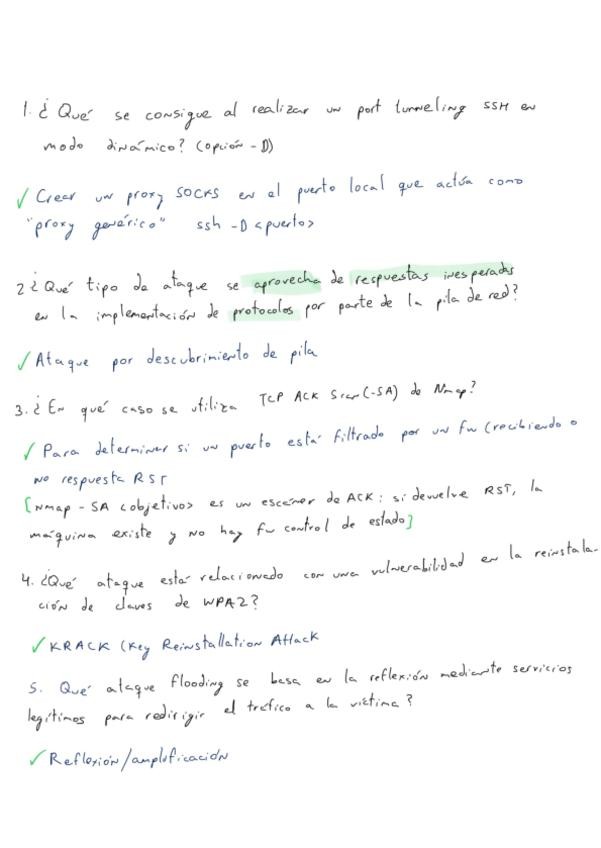 1. ¿Qué se consigue al realizar un port tunneling SSH en
modo dinámico? (opción -D)
✓ Crear un proxy SOCKS en el puerto local que actúa como
"proxy genérico" ssh -D <puerto>
2 ¿Qué tipo de ataque se aprovecha de respuestas inesperadas
en la implementación de protocolos por parte de la pila de red?
✓ Ataque por descubrimiento de pila
3. ¿En qué caso se utiliza TCP ACK Scan (-SA) de Nmap?
✓ Para determinar si un puerto está filtrado por un fw (recibiendo o
no respuesta RST
[Nmap -SA <objetivo> es un escáner de ACK: si devuelve RST, la
máquina existe y no hay fw control de estado]
4. ¿Qué ataque está relacionado con una vulnerabilidad en la reinstala-
ción de claves de WPA2?
✓ KRACK (Key Reinstallation Attack
5. Qué ataque flooding se basa en la reflexión mediante servicios
legítimos para redirigir el tráfico a la víctima?
✓ Reflexión/amplificación